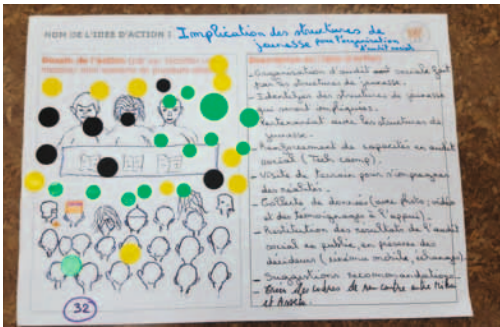 NOM DE L'IDEE D'ACTION : Implication des structures de
jeunesse pour l'organisation
d'audit social
Dessin de l'action
Description de l'idée d'action
- Organisation d'audit sociale fait
par les structures de jeunesse.
- Identifier des structures de jeunesse
qui seront impliquées.
- Partenariat avec les structures de
jeunesse.
- Renforcement de capacités en audit
social (Tech camp).
- Visite de terrain pour s'imprégner
des réalités.
- Collecte de données (avec photo, vidéo
et des témoignages à l'appui).
- Restitution des resultats de l'audit
social en public, en présence des
décideurs (cinéma mobile, échanges)
- Suggestions recommandations
- Créer des cadres de rencontre entre
et
32